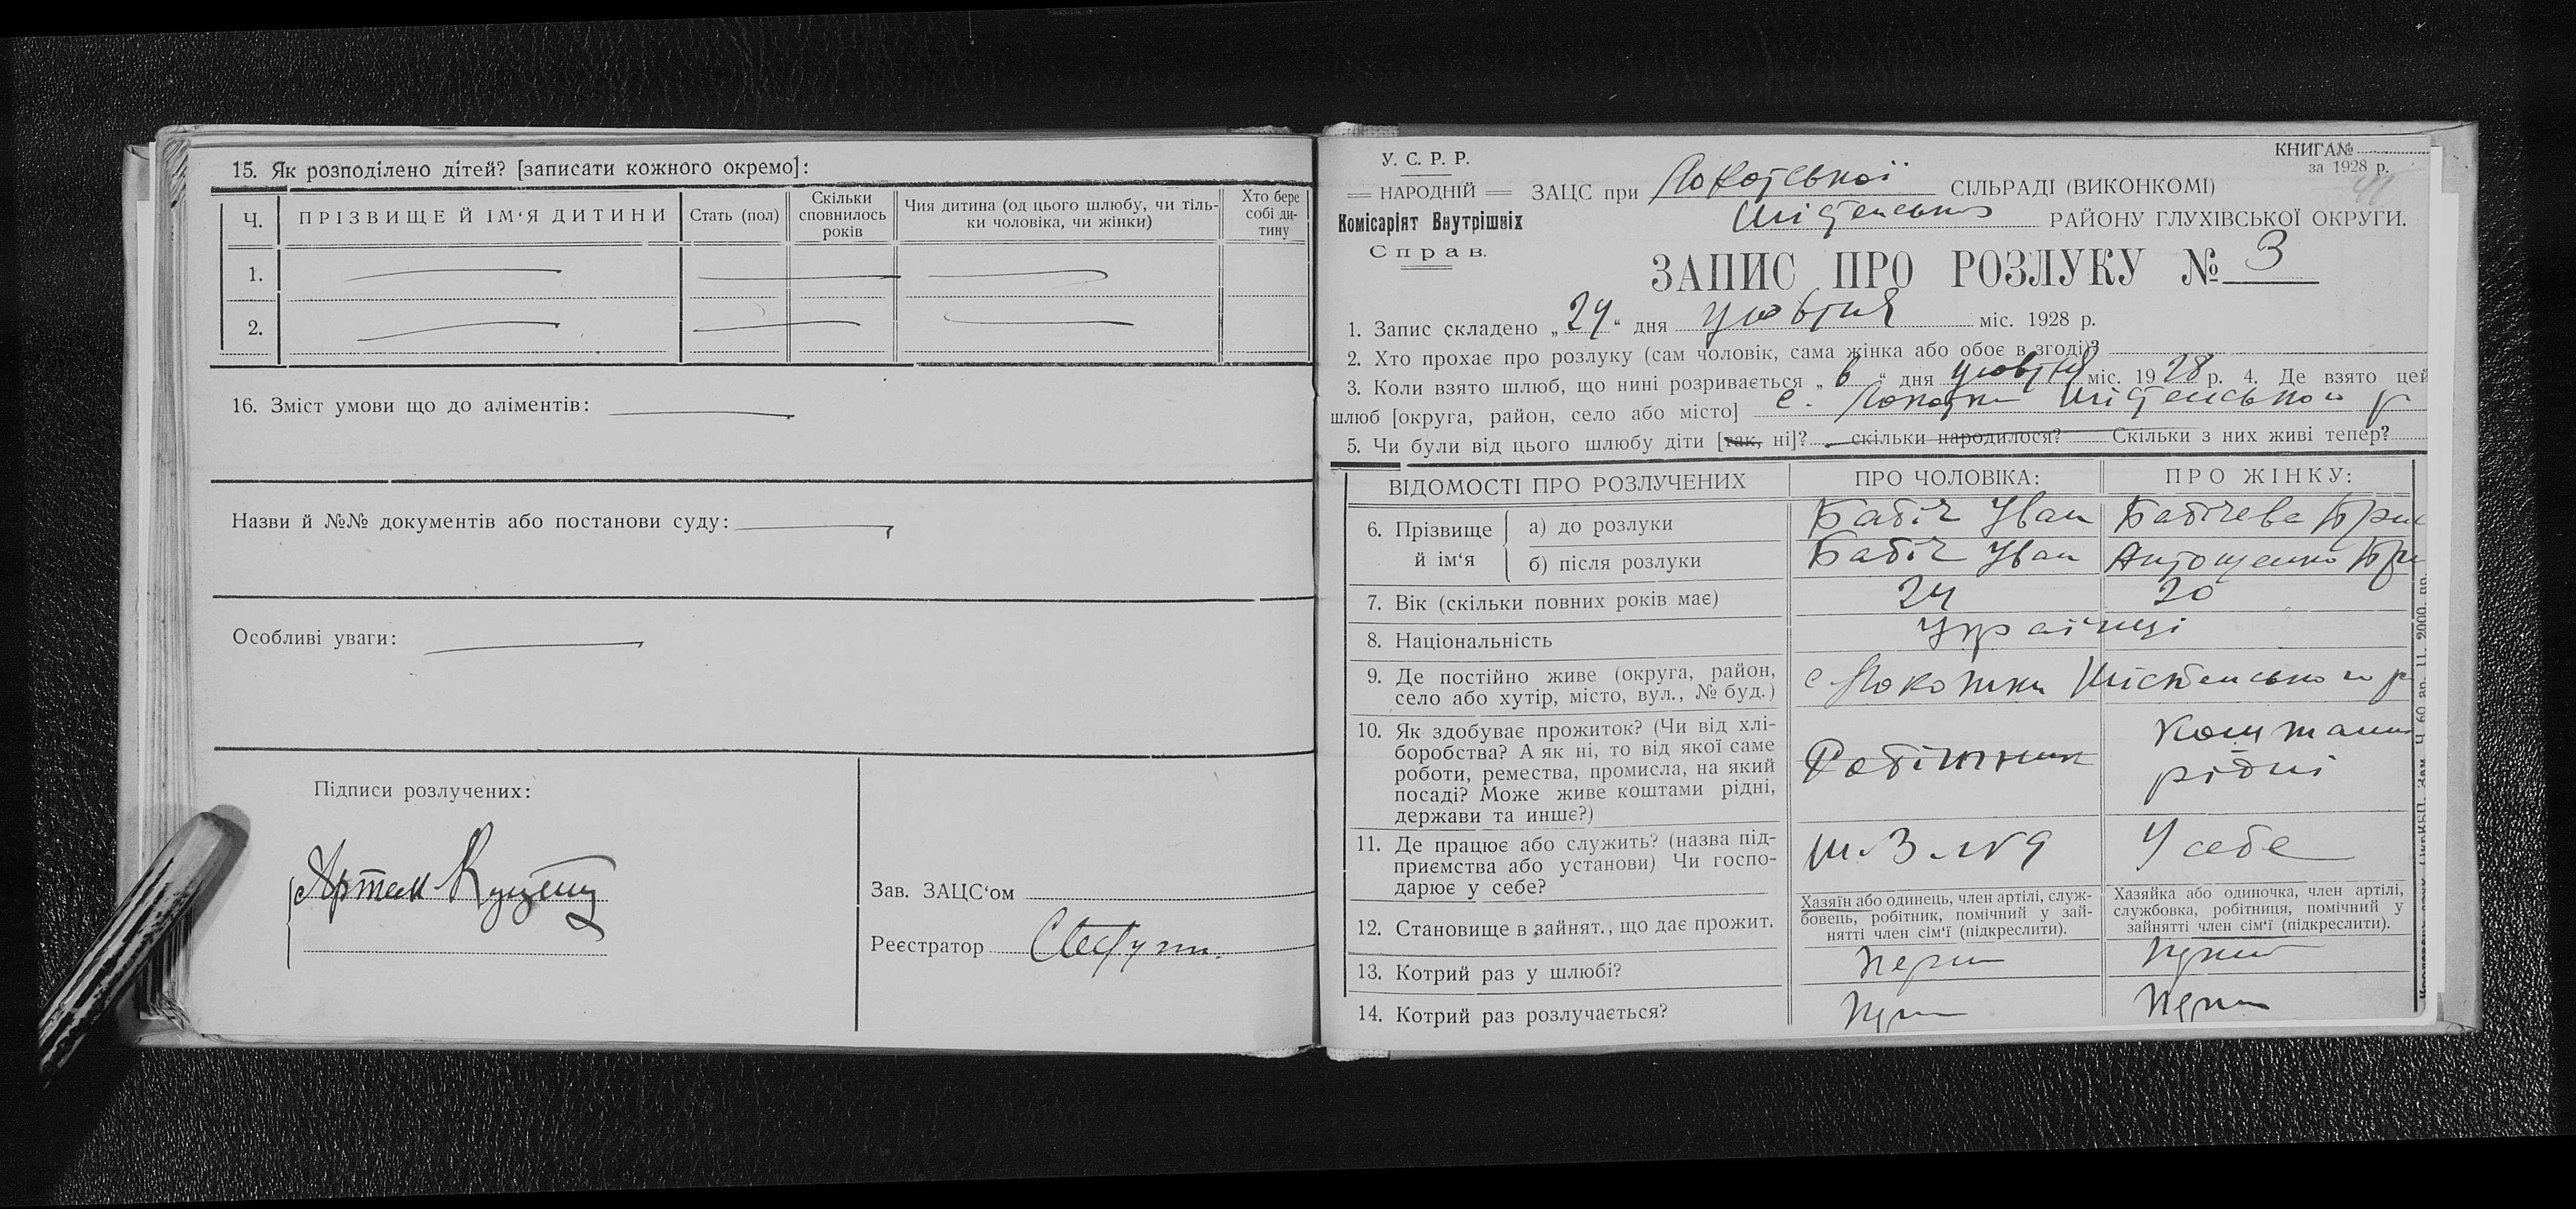 15. Як розподілено дітей? [записати кожного окремо]:
Ч.
ПРІЗВИЩЕ Й ІМ‘Я ДИТИНИ
Стать (пол)
Скільки
сповнилось
років
Чия дитина (од цього шлюбу, чи тіль-
ки чоловіка, чи жінки)
Хто бере
собі ди-
тину
1.
2.
16. Зміст умови що до аліментів:
Назви й №№ документів або постанови суду:
Особливі уваги:
Підписи розлучених:
Артем
Зав. ЗАЦС‘ом
Реєстратор
У. С. Р. Р.
НАРОДНІЙ
Комісаріят Внутрішніх
Справ.
КНИГА№
за 1928 р.
ЗАЦС при Локотської СІЛЬРАДІ (ВИКОНКОМІ)
РАЙОНУ ГЛУХІВСЬКОЇ ОКРУГИ.
ЗАПИС ПРО РОЗЛУКУ № 3
1. Запис складено „24“ дня жовтня міс. 1928 р.
2. Хто прохає про розлуку (сам чоловік, сама жінка або обоє в згоді)?
3. Коли взято шлюб, що нині розривається „6“ дня жовтня міс. 1928 р. 4. Де взято цей
шлюб [округа, район, село або місто] с. Локотки
5. Чи були від цього шлюбу діти [так, ні]? скільки народилося? Скільки з них живі тепер?
ВІДОМОСТІ ПРО РОЗЛУЧЕНИХ
ПРО ЧОЛОВІКА:
ПРО ЖІНКУ:
6. Прізвище й ім‘я
а) до розлуки
Бабіч Іван
Бабічева
б) після розлуки
Бабіч Іван
Антощенко
7. Вік (скільки повних років має)
24
20
8. Національність
Українці
9. Де постійно живе (округа, район,
село або хутір, місто, вул., № буд.)
с Локотки
10. Як здобуває прожиток? (Чи від хлі-
боробства? А як ні, то від якої саме
роботи, ремества, промисла, на який
посаді? Може живе коштами рідні,
держави та инше?)
Робітник
коштами
рідні
11. Де працює або служить? (назва під-
приємства або установи) Чи госпо-
дарює у себе?
Ш.З. №9
У себе
12. Становище в зайнят., що дає прожит.
Хазяїн або одинець, член артілі, служ-
бовець, робітник, помічний у зай-
нятті член сім‘ї (підкреслити).
Хазяйка або одиночка, член артілі,
службовка, робітниця, помічний у
зайнятті член сім‘ї (підкреслити).
13. Котрий раз у шлюбі?
14. Котрий раз розлучається?